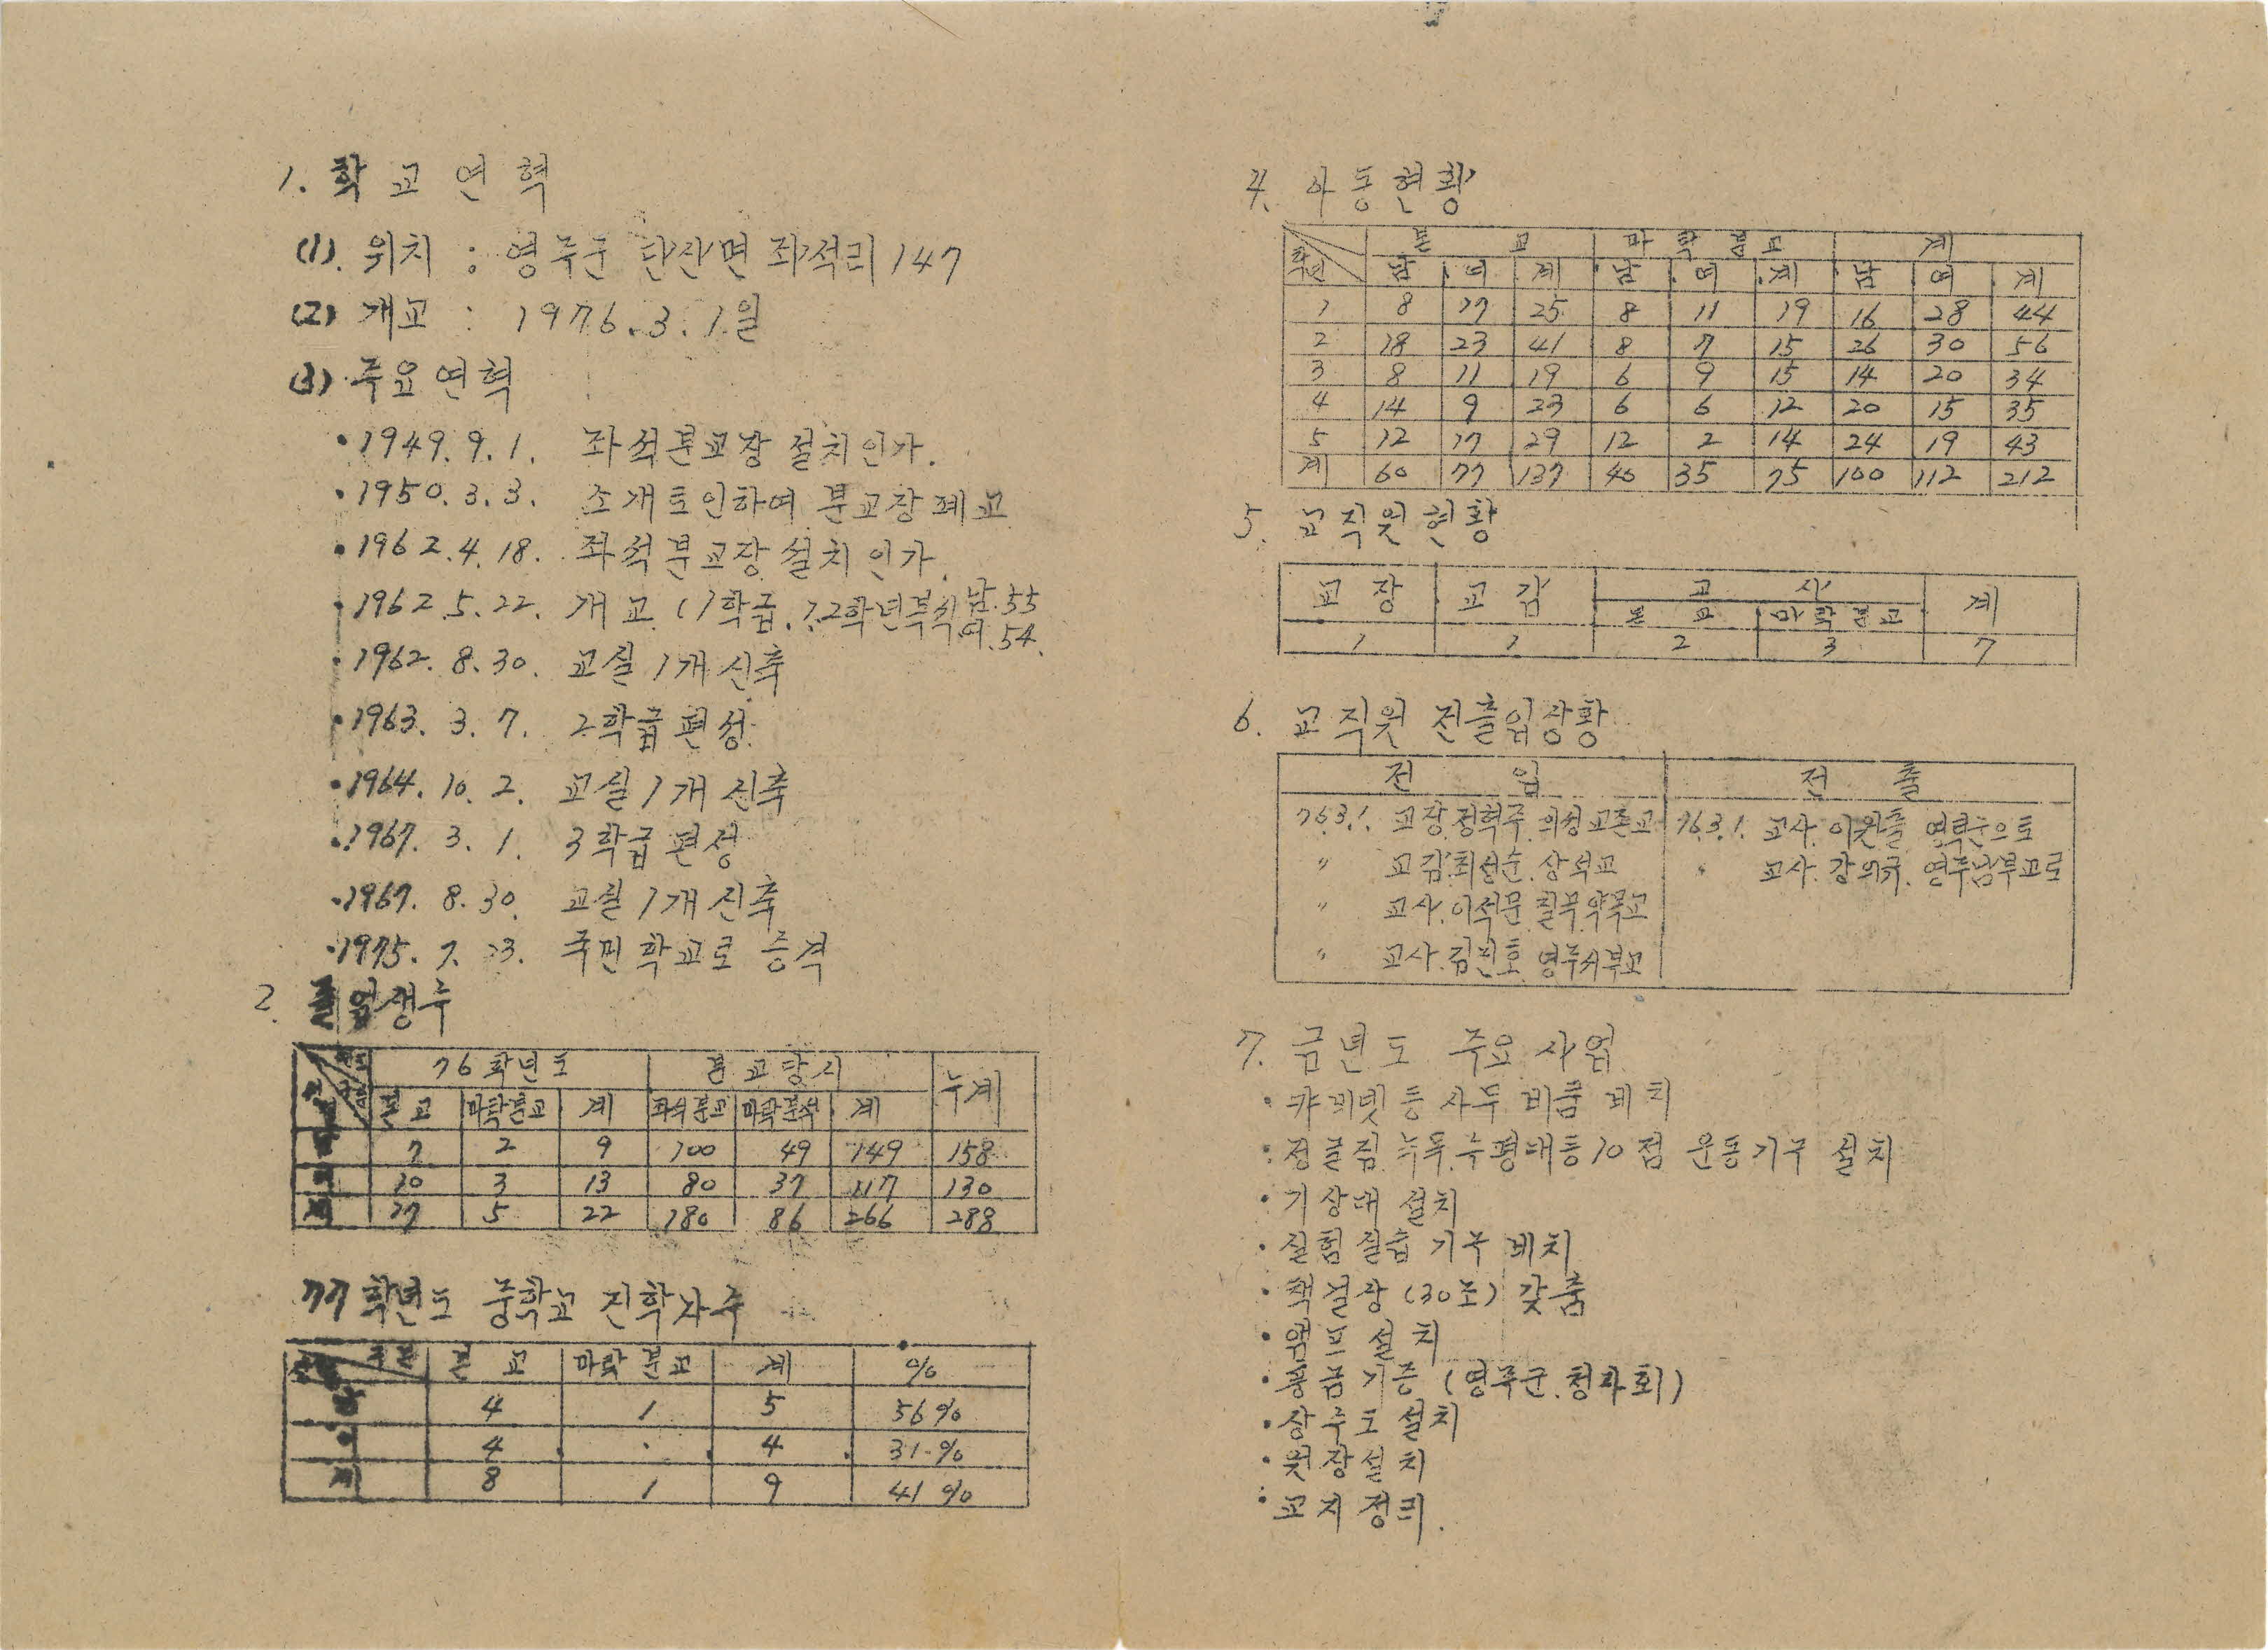 1. 학교연혁
(1). 위치 : 영주군 단산면 좌석리 147
(2) 개교 : 1976. 3. 1.일
(3) 주요연혁
• 1949. 9. 1. 좌석분교장 설치인가.
• 1950. 3. 3. 소개로인하여 분교장 폐교
• 1962. 4. 18. 좌석분교장 설치 인가.
• 1962. 5. 22. 개교 (1학급. 1.2학년 남.55
여.54.
• 1962. 8. 30. 교실 1개 신축
• 1963. 3. 7. 2학급편성.
• 1964. 10. 2. 교실 1개 신축
• 1967. 3. 1. 3학급편성
• 1967. 8. 30. 교실 1개 신축
• 1975. 7. 국민학교로 승격
2. 졸업생수
76학년도 분교당시 누계
본교 마락분교 계 좌석분교 마락분석 계
남 7 2 9 100 49 149 158
여 10 3 13 80 37 117 130
계 17 5 22 180 86 266 288
77학년도 중학교 진학자수
본교 마락분교 계 %
남 4 1 5 56%
4 . 4 31.%
계 8 1 9 41%
4. 아동현황
학년 본교 마락분교 계
남 여 계 남 여 계 남 여 계
1 8 17 25 8 11 19 16 28 44
2 18 23 41 8 7 15 26 30 56
3 8 11 19 6 9 15 14 20 34
4 14 9 23 6 6 12 20 15 35
5 12 17 29 12 2 14 24 19 43
계 60 77 137 40 35 75 100 112 212
5. 교직원현황
교장 교감 교사 계
본교 마락분교
1 1 2 3 7
6. 교직원 전출입상황
전입 전출
76.3.1. 교장.정혁주 의성 76.3.1. 교사. 이원출
〃 교감.최성순. 상석교 〃 교사. 강의규. 영주남부교로
〃 교사.이석문 칠곡.약목교
〃 교사.김진호. 영주서부교
7. 금년도 주요사업
• 캬비넷 등 사무 비품 비치
• 정글짐.녹목.수평대등 10점 운동기구 설치
• 기상대 설치
• 실험실습 기구 비치
• 책걸상 (30조) 갖춤
• 앰프 설치
• 풍금기증 (영주군.청자회)
• 상수도설치
• 원장설치
• 교지정리.